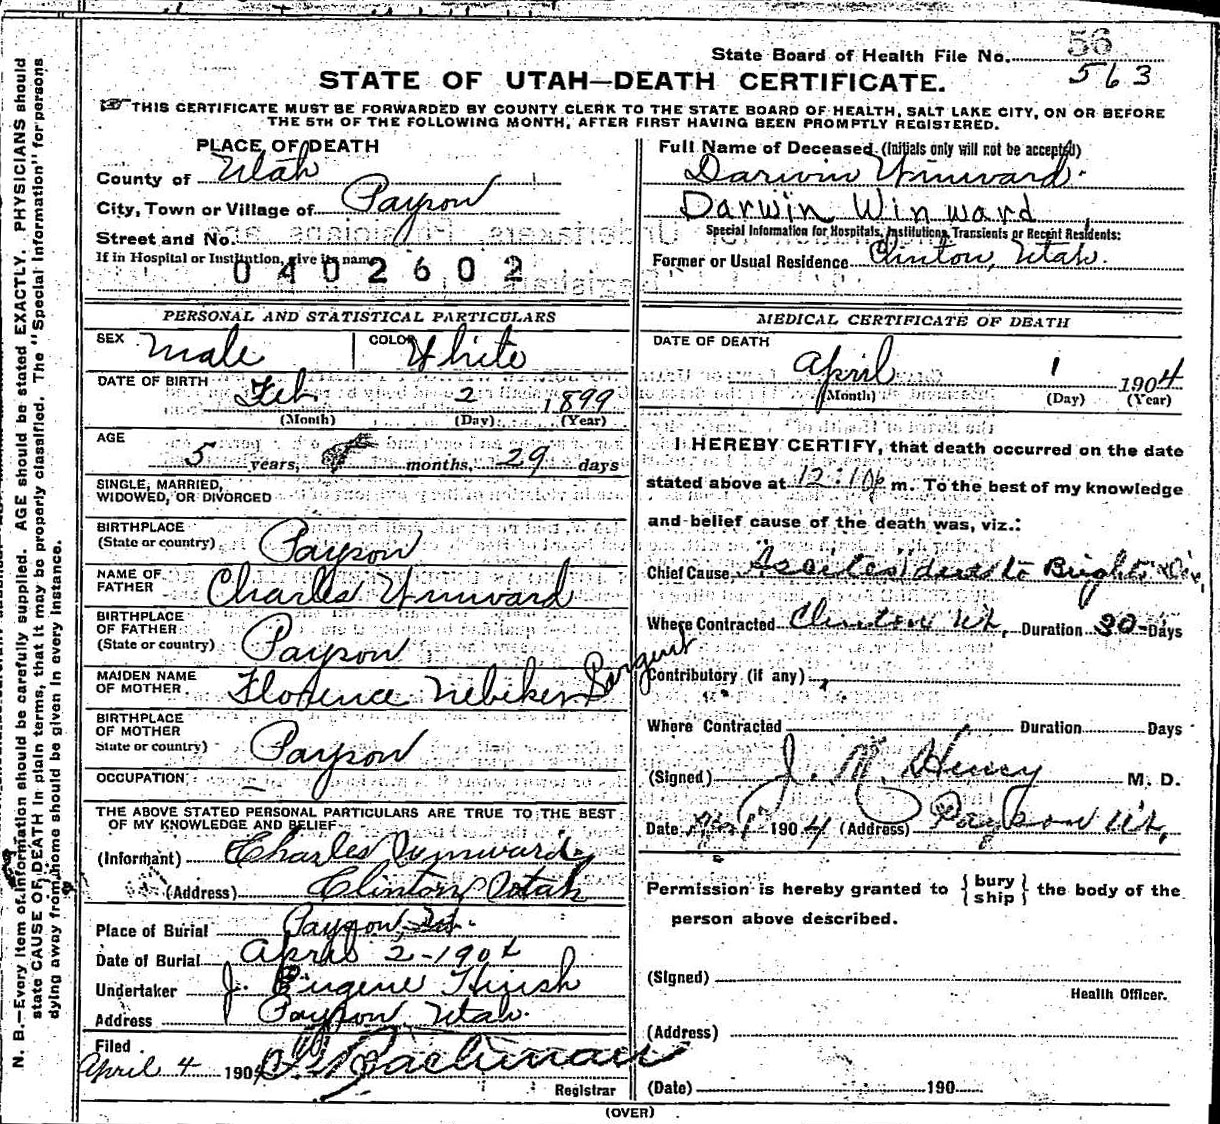 State Board of Health File No. 56
563
STATE OF UTAH—DEATH CERTIFICATE.
☞ THIS CERTIFICATE MUST BE FORWARDED BY COUNTY CLERK TO THE STATE BOARD OF HEALTH, SALT LAKE CITY, ON OR BEFORE
THE 5TH OF THE FOLLOWING MONTH, AFTER FIRST HAVING BEEN PROMPTLY REGISTERED.
PLACE OF DEATH
County of Utah
City, Town or Village of Payson
Street and No.
If in Hospital or Institution, give its name
0402602
PERSONAL AND STATISTICAL PARTICULARS
SEX Male COLOR White
DATE OF BIRTH Feb. 2 1899
(Month) (Day) (Year)
AGE
5 years, months, 29 days
SINGLE, MARRIED,
WIDOWED, OR DIVORCED
BIRTHPLACE
(State or country) Payson
NAME OF
FATHER Charles Winward
BIRTHPLACE
OF FATHER
(State or country) Payson
MAIDEN NAME
OF MOTHER Florence Nebeker Sargent
BIRTHPLACE
OF MOTHER
State or country) Payson
OCCUPATION —
THE ABOVE STATED PERSONAL PARTICULARS ARE TRUE TO THE BEST
OF MY KNOWLEDGE AND BELIEF
(Informant) Charles Winward
(Address) Clinton, Utah
Place of Burial Payson, Ut.
Date of Burial April 2-1904
Undertaker J. Eugene
Address Payson, Utah.
Filed
April 4 1904
Registrar
Full Name of Deceased (Initials only will not be accepted)
Darwin Winward.
Darwin Winward
Special Information for Hospitals, Institutions, Transients or Recent Residents:
Former or Usual Residence Clinton, Utah.
MEDICAL CERTIFICATE OF DEATH
DATE OF DEATH
April 1 1904
(Month) (Day) (Year)
I HEREBY CERTIFY, that death occurred on the date
stated above at 12:10 p m. To the best of my knowledge
and belief cause of the death was, viz.:
Chief Cause "Ascites" due to Brights Dis,
Where Contracted Clinton Ut, Duration 30 Days
Contributory (if any)
Where Contracted Duration Days
(Signed) J. M. Henry M. D.
Date 1904 (Address) Payson Ut,
Permission is hereby granted to { bury
ship } the body of the
person above described.
(Signed)
Health Officer.
(Address)
(Date) 190
(OVER)
N. B.—Every item of information should be carefully supplied. AGE should be stated EXACTLY. PHYSICIANS should
state CAUSE OF DEATH in plain terms, that it may be properly classified. The "Special Information" for persons
dying away from home should be given in every instance.